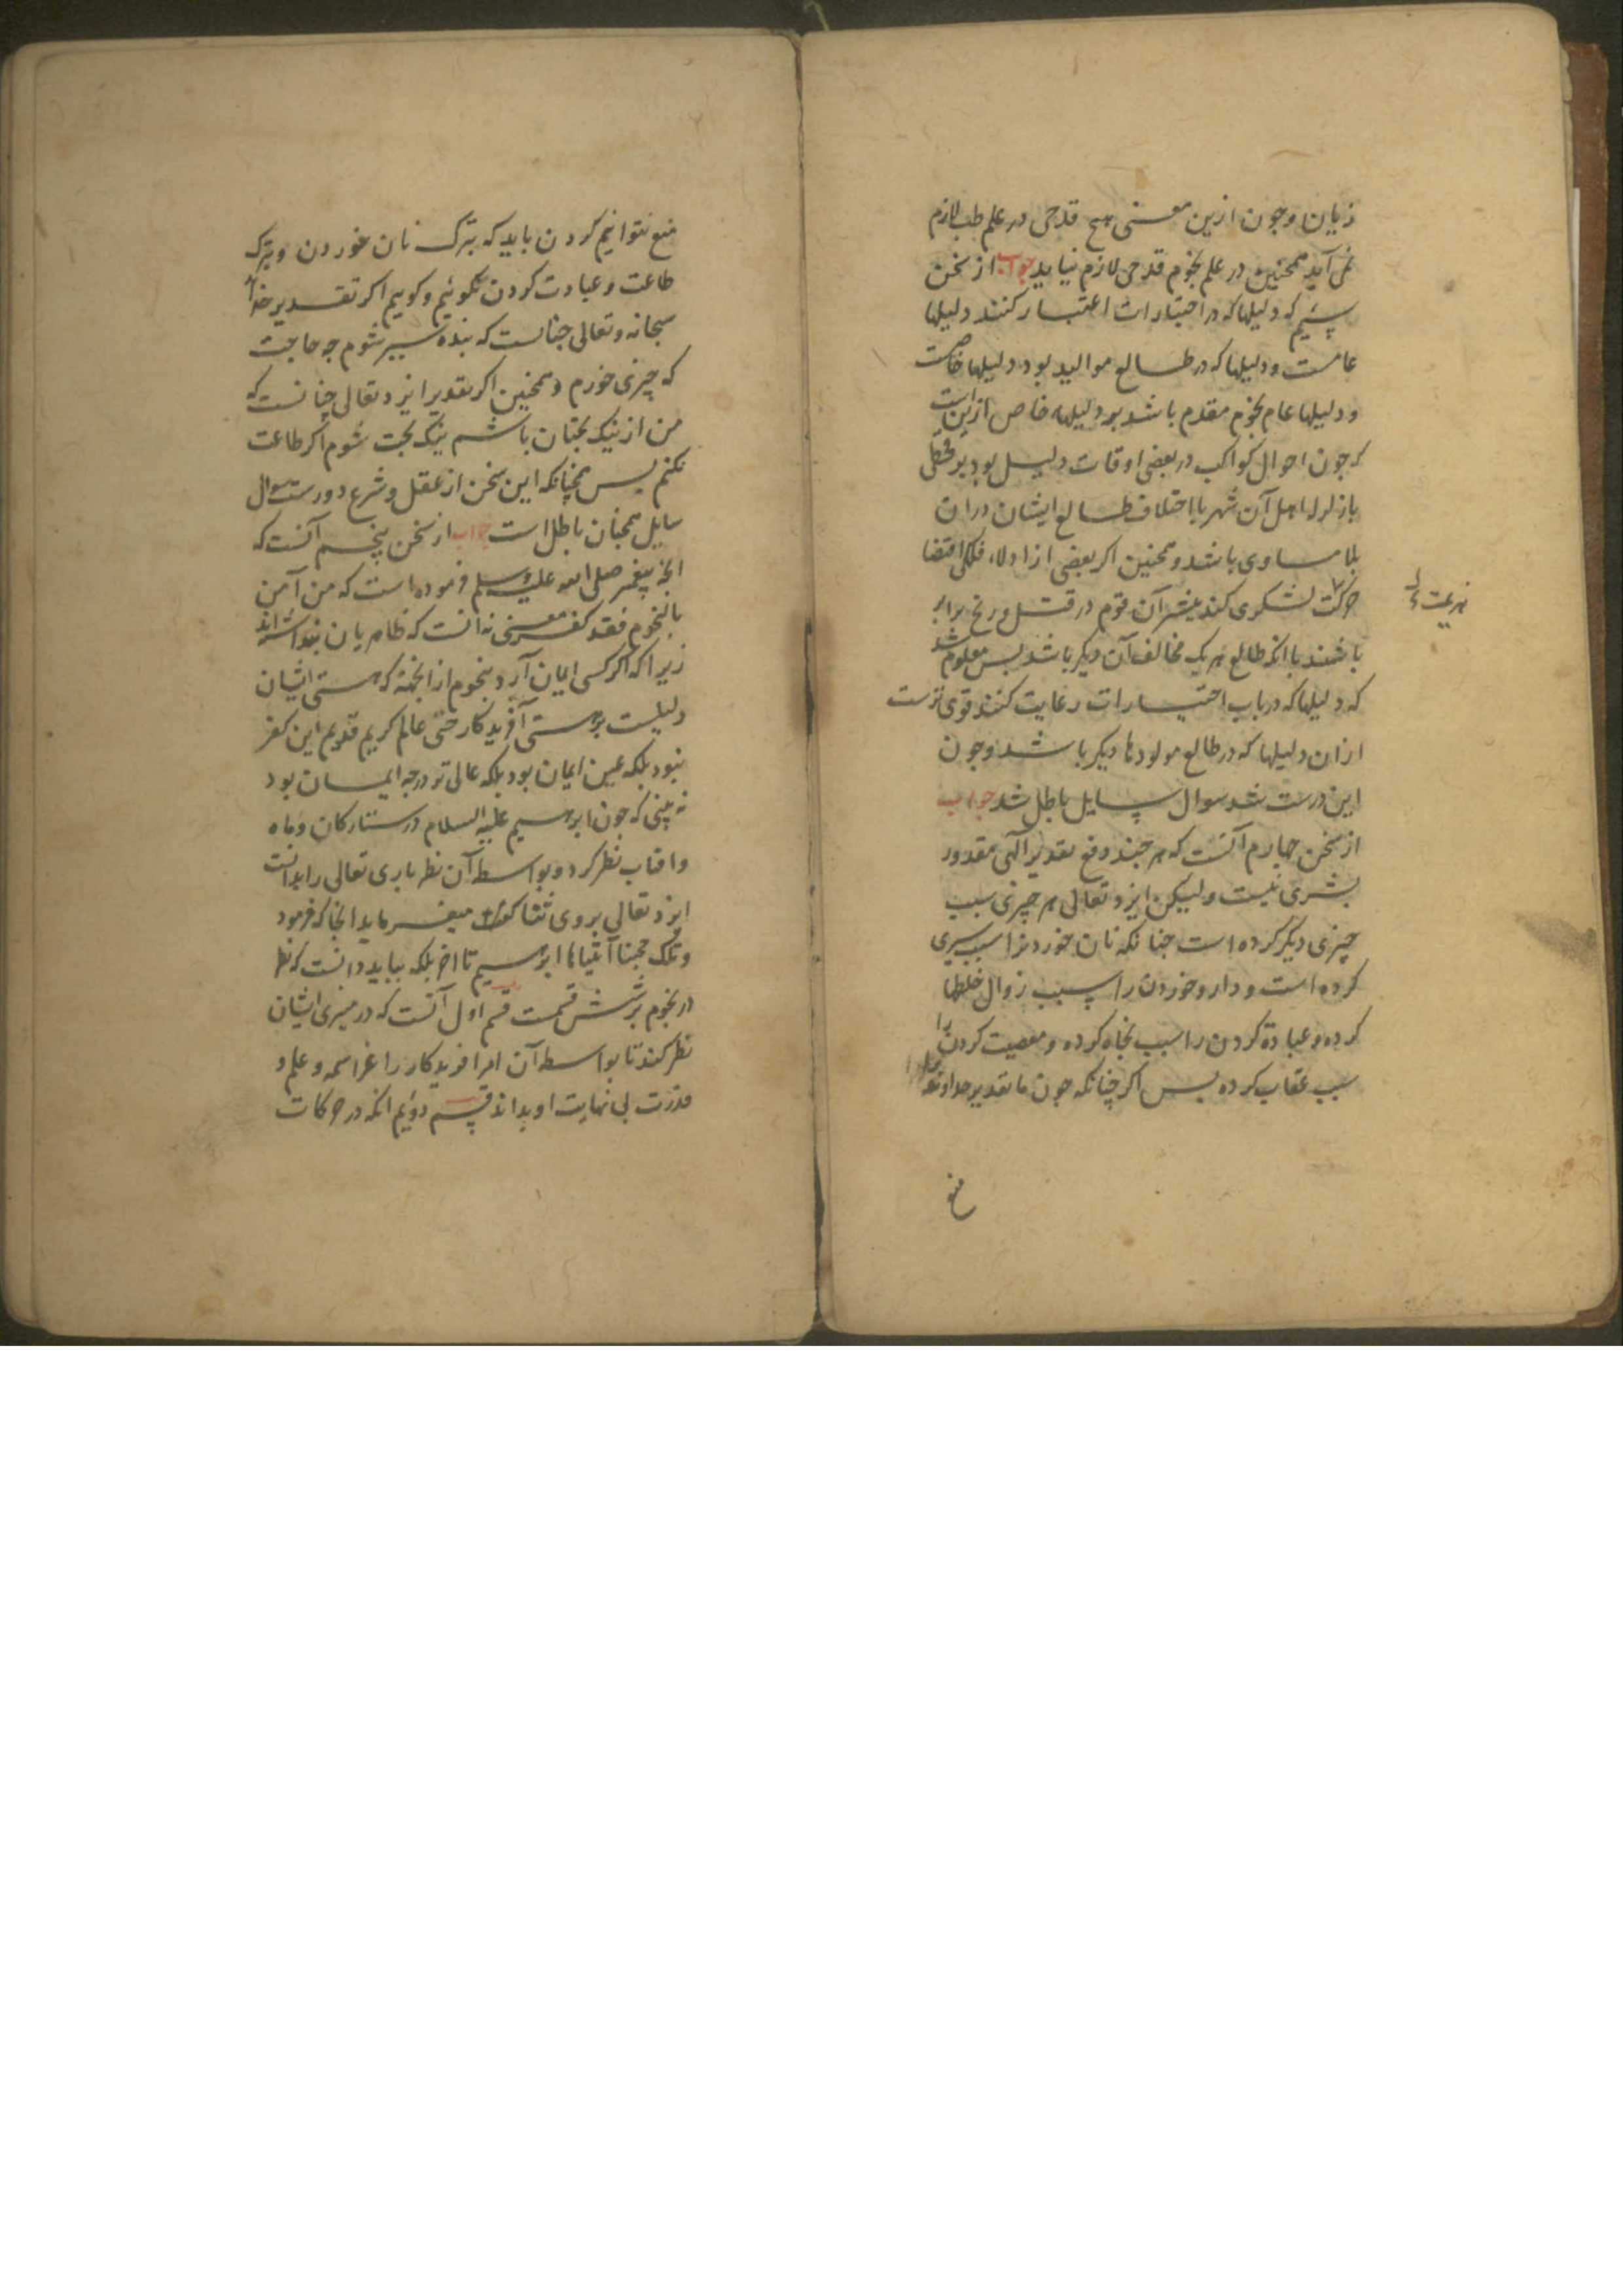 زیان وجون ازین معنی هیچ قدحی در علم طب لازم
نمی آید همچنین در علم نجوم قدحی لازم نیاید جواب از سخن
سیّم که دلیلها که در اختیارات اعتبار کنند دلیلها
عامست ودلیلها که در طالع موالید بود دلیلها خاصست
ودلیلها عام نجوم مقدم باشد بر دلیلهاء خاص ازین است
که جون احوال کواکب در بعضی اوقات دلیل بود بر قحطی
یا زلزله اهل آن شهر با اختلاف طالع ایشان دران
بلا مساوی باشند وهمچنین اکر بعضی از ادلاء فلکی اقتضا
حرکت لشکری کند بیشتر آن قوم در قتل ورنج برابر
باشند با انکه طالع هر یک مخالف آن دیکر باشد بس معلوم شد
که دلیلها که در باب اختیارات رعایت کنند قوی ترست
ازان دلیلها که در طالع مولودها دیکر باشد وجون
این درست شد سوال سایل باطل شد جواب
از سخن جهارم آنست که هر جند دفع تقدیر آلهی مقدور
بشری نیست ولیکن ایزد تعالی هر چیزی سبب
چیزی دیکر کرده است جنانکه نان خوردنرا سبب سیری
کرده است ودارو خوردن را سبب زوال خلطها
کرده وعبادة کردن را سبب نجاه کرده ومعصیت کردن را
سبب عقاب کرده بس اکر چنانکه جون ما تقدیر خداوند
منع
منع نتوانیم کردن باید که بترک نان خوردن وبترک
طاعت وعبادت کردن نکوئیم وکوییم اکر تقدیر خدا
سبحانه وتعالی جنانست که بنده سیر شوم جه حاجت
که چیزی خورم وهمچنین اکر تقدیر ایزد تعالی چنانست که
من از نیک بختان باشم نیک بخت شوم اکر طاعت
نکنم بس همچنانکه این سخن از عقل وشرع دورست سوال
سایل همچنان باطل است جواب از سخن پنجم آنست که
انج پیغمبر صلی الله علیه وسلم فرموده است که من آمن
بالنجوم فقد کفر معنی نه انست که ظاهریان بنداشته اند
زیرا که اکر کسی ایمان آرد بنجوم از انجهة که هستی ایشان
دلیلست بر هستی آفریدکار حتی عالم کریم قدیم این کفر
نبود بلکه عین ایمان بود بلکه عالی تر درجه ایمان بود
نه بینی که جون ابرهیم علیه السلام در ستارکان وماه
وافتاب نظر کرد وبواسطه آن نظر باری تعالی را بدانست
ایزد تعالی بروی ثنا کفت میفرماید انجا که فرمود
وتلک حجتنا آتیناها ابرهیم تا اخر بلکه بباید دانست که نظر
در نجوم بر شش قسمت قسم اول آنست که در میزی ایشان
نظر کند تا بواسطه آن امر افریدکار را عز اسمه وعلم و
قدرت بی نهایت او بداند قسم دوئیم انکه در حرکات